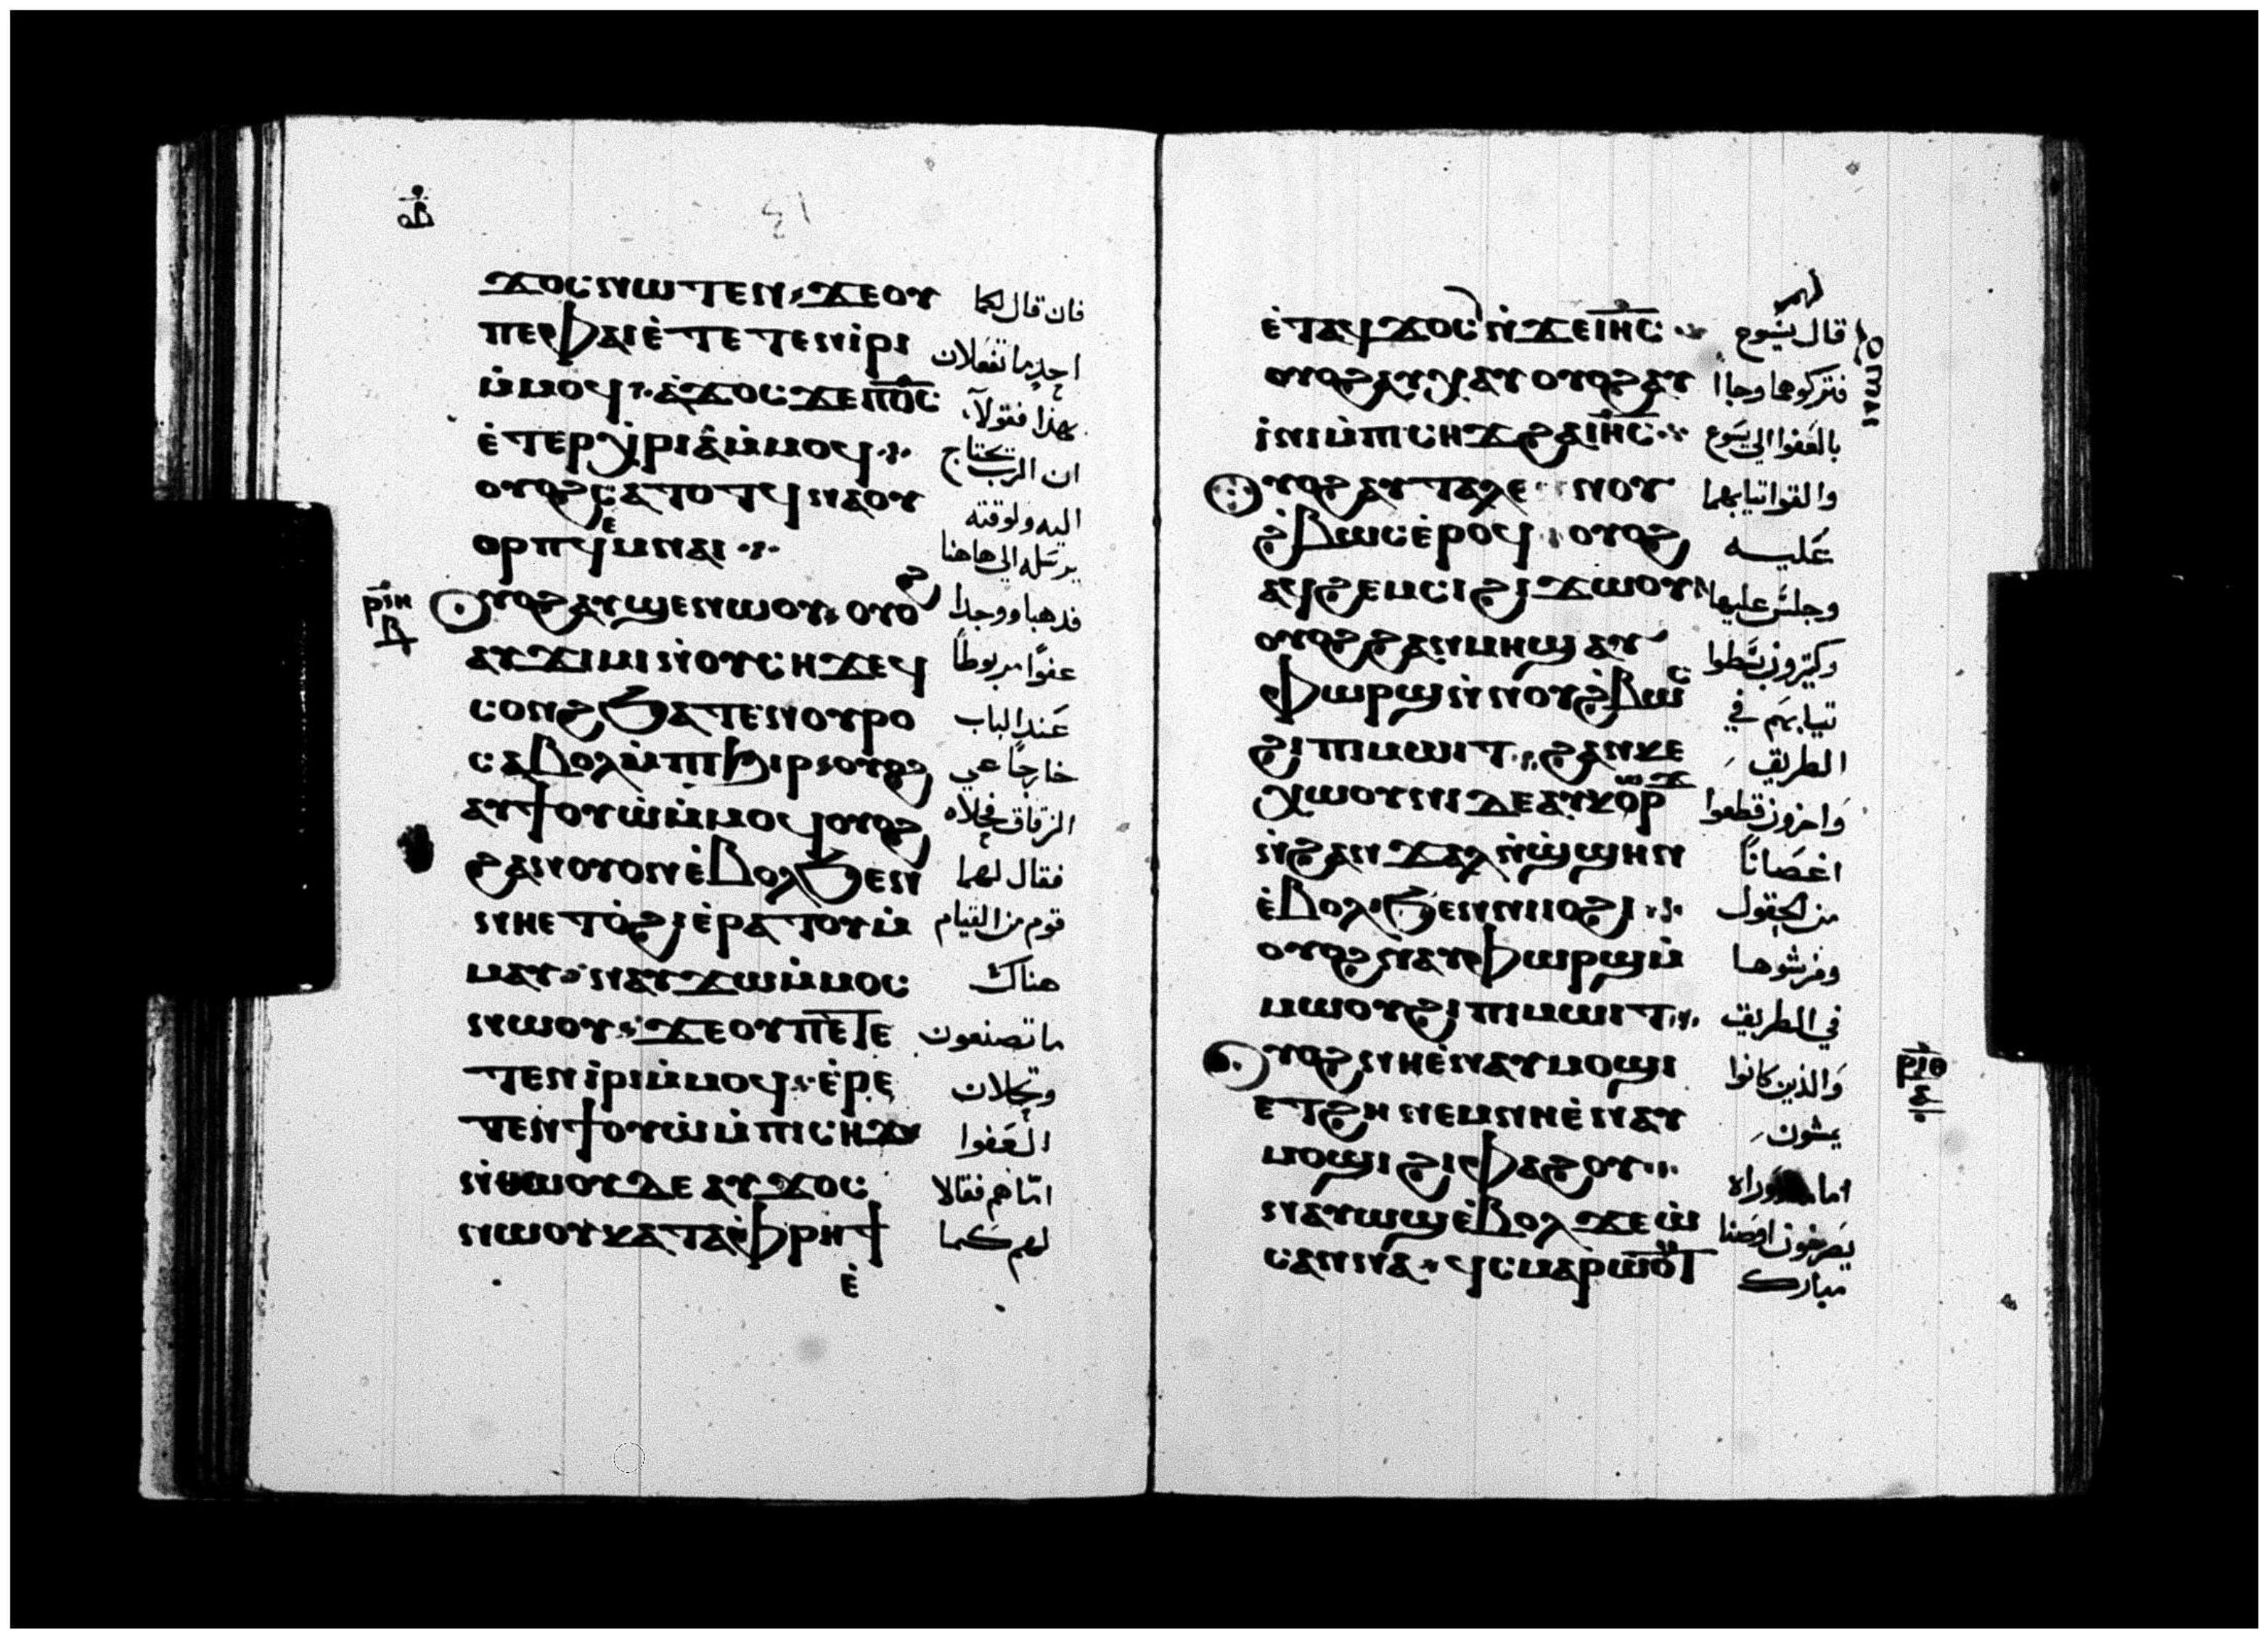 ⲟⲃ
ϫⲟⲥ ⲛⲱⲧⲉⲛ ϫⲉ ⲟⲩ فان قال لكما
ⲡⲉ ⲫⲁⲓ ⲉ̀ⲧⲉⲧⲉⲛⲓ̀ⲣⲓ احد ما تفعلان
ⲙ̀ⲙⲟϥ ⲁ̀ϫⲟⲥ ϫⲉ ⲡ̅ϭ̅ⲥ̅ بهذا فقولا
ⲉ̀ⲧⲉⲣⲭ̀ⲣⲓⲁ ⲙ̀ⲙⲟϥ ان الرب يحتاج
ⲟⲩⲟϩ ⲥⲁⲧⲟⲧϥ ⲛⲁⲟⲩ اليه ولوقته
ⲟⲣⲡϥ ⲉ̀ⲙⲛⲁⲓ يرسله الى هاهنا
ⲣⲓⲏ ⲃ
ⲟⲩⲟϩ ⲁⲩϣⲉⲛⲱⲟⲩ ⲟⲩⲟϩ فذهبا ووجدا
ⲁⲩϫⲓⲙⲓ ⲛ̀ⲟⲩⲥⲏϫ ⲉϥ عفوًا مربوطاً
ⲥⲟⲛϩ ϧⲁⲧⲉⲛ ⲟⲩⲣⲟ عند الباب
ⲥⲁⲃⲟⲗ ⲙ̀ⲡⲓϧⲓⲣ ⲟⲩⲟϩ خارجاً في
ⲁⲩϯⲟⲩⲱ ⲙ̀ⲙⲟϥ ⲟⲩⲟϩ الزقاق فحلاه
ϩⲁⲛⲟⲩⲟⲛ ⲉ̀ⲃⲟⲗ ϧⲉⲛ فقال لهما
ⲛⲏⲉⲧⲟ̀ϩⲓ ⲉ̀ⲣⲁⲧⲟⲩ ⲙ̀ قوم من القيام
ⲙⲁⲩ ⲛⲁⲩϫⲱ ⲙ̀ⲙⲟⲥ هناك
ⲛⲱⲟⲩ ϫⲉ ⲟⲩ ⲡⲉⲧⲉ ما تصنعون
ⲧⲉⲛⲓ̀ⲣⲓ ⲙ̀ⲙⲟϥ ⲉ̀ⲣⲉ وتحلان
ⲧⲉⲛϯⲟⲩⲱ ⲙ̀ⲡⲓⲥⲏϫ العفوا
ⲛ̀ⲑⲱⲟⲩ ⲇⲉ ⲁⲩϫⲟⲥ امّا هم فقالا
ⲛⲱⲟⲩ ⲕⲁⲧⲁ ⲫⲣⲏϯ لهم كما
ⲉ̀
ⲉ̀ⲧⲁϥϫⲟⲥ ⲛ̀ϫⲉ ⲓ̅ⲏ̅ⲥ̅ قال لهم يسوع
ⲟⲩⲟϩ ⲁⲩⲭⲁⲩ ⲟⲩⲟϩ ⲁⲩ فتركوهما وجاا
ⲓ̀ⲛⲓ ⲙ̀ⲡⲓⲥⲏϫ ϩⲁ ⲓ̅ⲏ̅ⲥ̅ بالعفوا الى يسوع
ⲟⲩⲟϩ ⲁⲩⲧⲁⲗⲉ ⲛⲟⲩ والقوا ثيابهما
ϩ̀ⲃⲱⲥ ⲉ̀ⲣⲟϥ ⲟⲩⲟϩ عليه
ⲁϥϩⲉⲙⲥⲓ ϩⲓϫⲱⲟⲩ وجلس عليها
ⲟⲩⲟϩ ϩⲁⲛⲙⲏϣ ⲁⲩ وكثيرون بسطوا
ⲫⲱⲣϣ ⲛ̀ⲛⲟⲩϩ̀ⲃⲱⲥ ثيابهم في
ϩⲓ ⲡⲓⲙⲱⲓⲧ ϩⲁⲛⲕⲉ الطريق
ⲭⲱⲟⲩⲛⲓ ⲇⲉ ⲁⲩⲕⲱⲣϫ واخرون قطعوا
ⲛ̀ϩⲁⲛϫⲁⲗ ⲛ̀ϣ̀ϣⲏⲛ اغصاناً
ⲉ̀ⲃⲟⲗ ϧⲉⲛ ⲛⲓⲓⲟϩⲓ من الحقول
ⲟⲩⲟϩ ⲛⲁⲩⲫⲱⲣϣ ⲙ̀ وفرشوها
ⲙⲱⲟⲩ ϩⲓ ⲡⲓⲙⲱⲓⲧ في الطريق
ⲟⲩⲟϩ ⲛⲏⲉ̀ⲛⲁⲩⲙⲟϣⲓ والذين كانوا
ⲣⲓⲑ
ⲉⲧϩⲏ ⲛⲉⲙ ⲛⲏⲉ̀ⲛⲁⲩ يمشون
ⲙⲟϣⲓ ϩⲓⲫⲁϩⲟⲩ
ⲛⲁⲩⲱϣ ⲉ̀ⲃⲟⲗ ϫⲉ ⲱ̀ يصرخون اوصنا
ⲥⲁⲛⲛⲁ ϥ̀ⲥⲙⲁⲣⲱⲟⲩⲧ مبارك